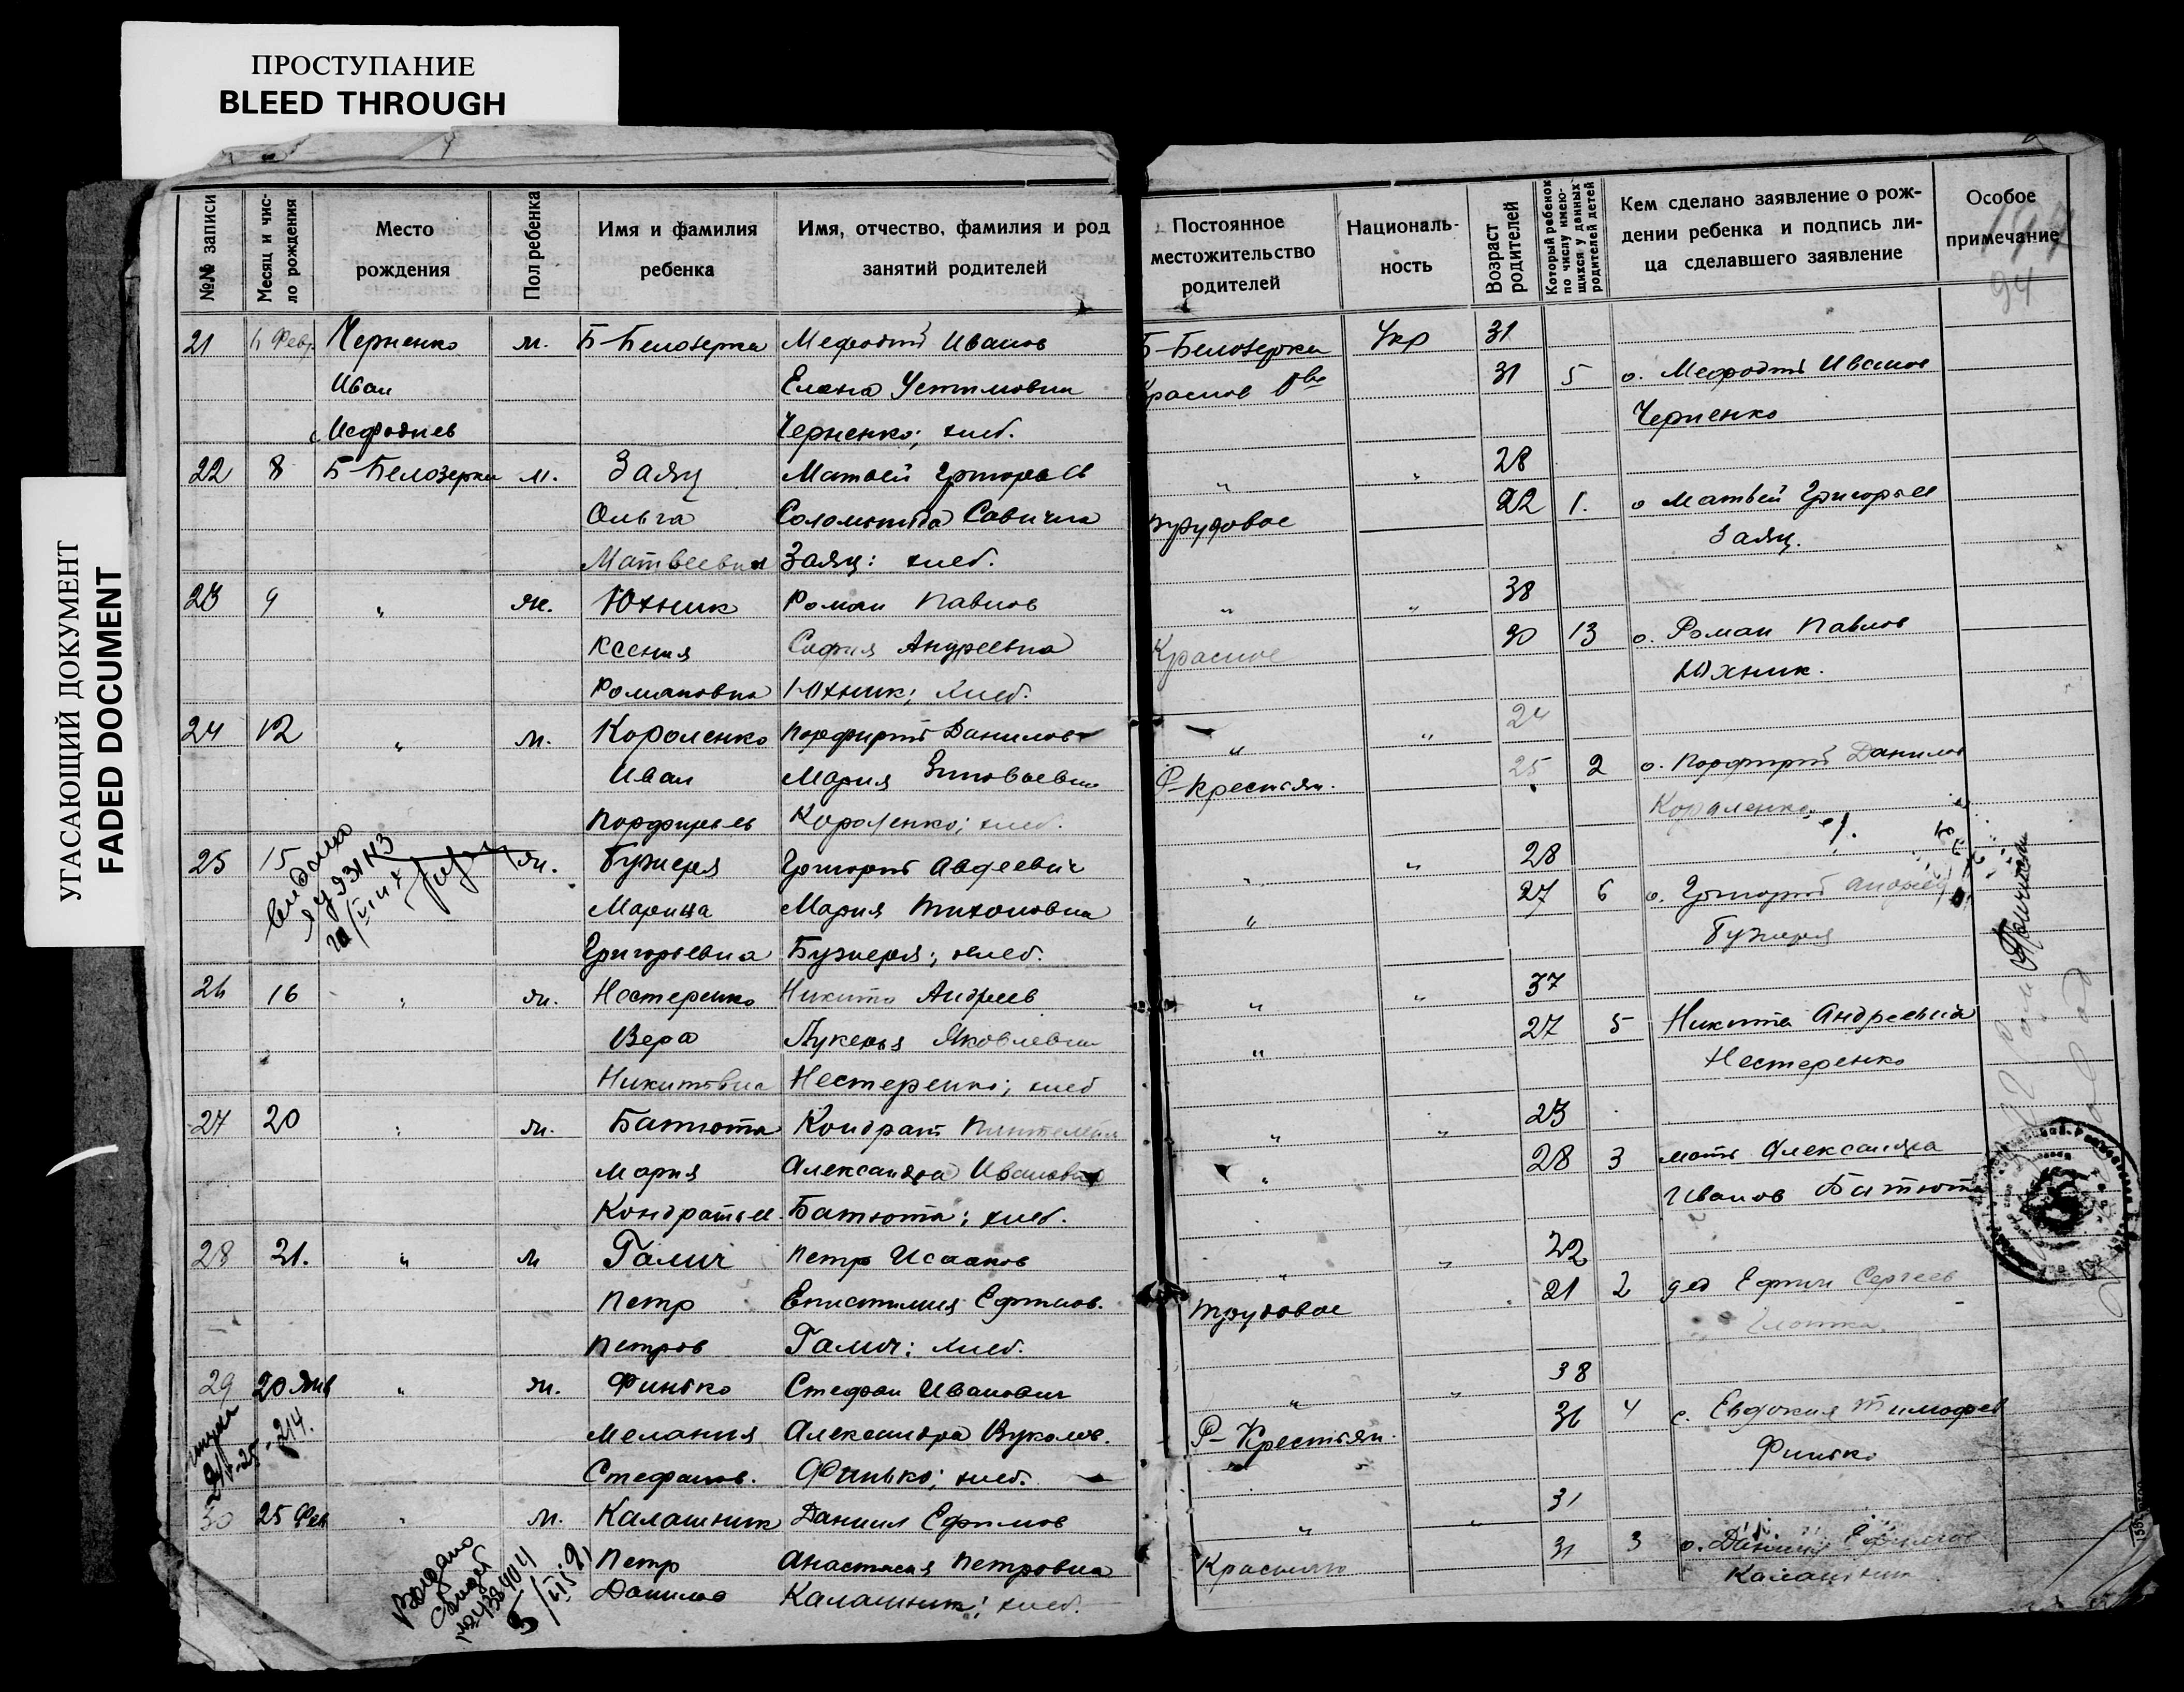 ПРОСТУПАНИЕ
BLEED THROUGH
УГАСАЮЩИЙ ДОКУМЕНТ
FADED DOCUMENT
№№ записи
Месяц и чис-
ло рождения
Место
рождения
Пол ребенка
Имя и фамилия
ребенка
Имя, отчество, фамилия и род
занятий родителей
Постоянное
местожительство
родителей
Националь-
ность
Возраст
родителей
Который ребенок
по числу имею-
щихся у данных
родителей детей
Кем сделано заявление о рож-
дении ребенка и подпись ли-
ца сделавшего заявление
Особое
примечание
94
21 Февр. Черненко м. Б-Белозерка Мефодий Иванов Б-Белозерка Укр 31
Иван Елена Устимовна Краснов 31 5 о. Мефодий Иванов
Мефодиев Черненко; хлеб. Черненко
22 8 Б-Белозерка м. Заяц Матвей Григорьев " " 28
Ольга Соломонида Савична Трудовое 22 1. о Матвей Григорьев
Матвеевна Заяц: хлеб. Заяц.
23 9 " ж. Юхник Роман Павлов " " 38
Ксения София Андреевна Красное 30 13 о. Роман Павлов
Романовна Юхник; хлеб. Юхник.
24 12 " м. Короленко Порфирий Данилов " " 24
Иван Мария Зиновьевна Р-Крестьян. 25 2 о. Порфирий Данилов
Порфирьев Короленко; хлеб. Короленко
25 15 ж. Бужеря Григорий Авдеевич " " 28
Марина Мария Тихоновна " 27 6 о. Григорий
Григорьевна Бужеря; хлеб. Бужеря
26 16 " ж. Нестеренко Никита Андреев " " 37
Вера Лукерья Яковлевна " 27 5 Никита Андреевич
Никитовна Нестеренко; хлеб Нестеренко
27 20 " ж. Батюта Кондрат " " 23
Мария Александра Ивановна " 28 3 мать Александра
Кондратьев. Батюта; хлеб. Иванов Батюта
28 21. " м Галич Петр Исааков " " 22
Петр Епистимия Ефимов. Трудовое 21 2 дед Ефим Сергеев
Петров Галич: хлеб.
29 20 Янв " ж. Финько Стефан Иванович " " 38
214. Мелания Александра Вуколов. Р-Крестьян. 36 4 с. Евдокия Тимофеев
Стефанов. Финько; хлеб. Финько
30 25 Фев " м. Калашник Даниил Ефимов " " 31
Петр Анастасия Петровна Красного 31 3 о. Даниил Ефимов
Данилов Калашник; хлеб. Калашник